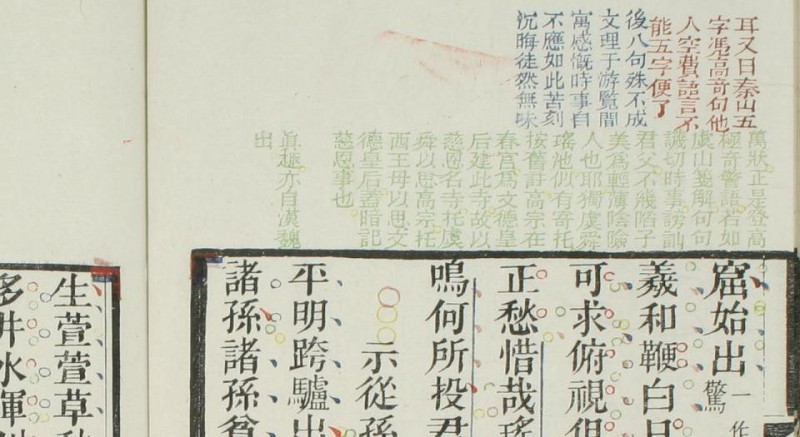 耳又曰秦山五
字馮高奇句他
人空費語言不
能五字便了
後八句殊不成
文理于游覽間
寓感慨時事自
不應如此苦刻
沉晦徒然無味
萬狀正是登高
極奇警語右如
虞山箋解句句
譏切時事謗訕
君父不幾階子
美爲輕薄陰險
人也耶獨虞舜
瑤池似有寄托
按舊註高宗在
春宮爲文德皇
后建此寺故以
慈恩名寺托虞
舜以思高宗托
西王母以思文
德皇后蓋暗記
慈恩事也
眞趣亦自漢魏
出
窟始出驚一作
羲和鞭白日
可求俯視但
正愁惜哉瑤
鳴何所投君
示從孫
平明跨驢出
諸孫諸孫貧
生萱萱草秋
多井水渾